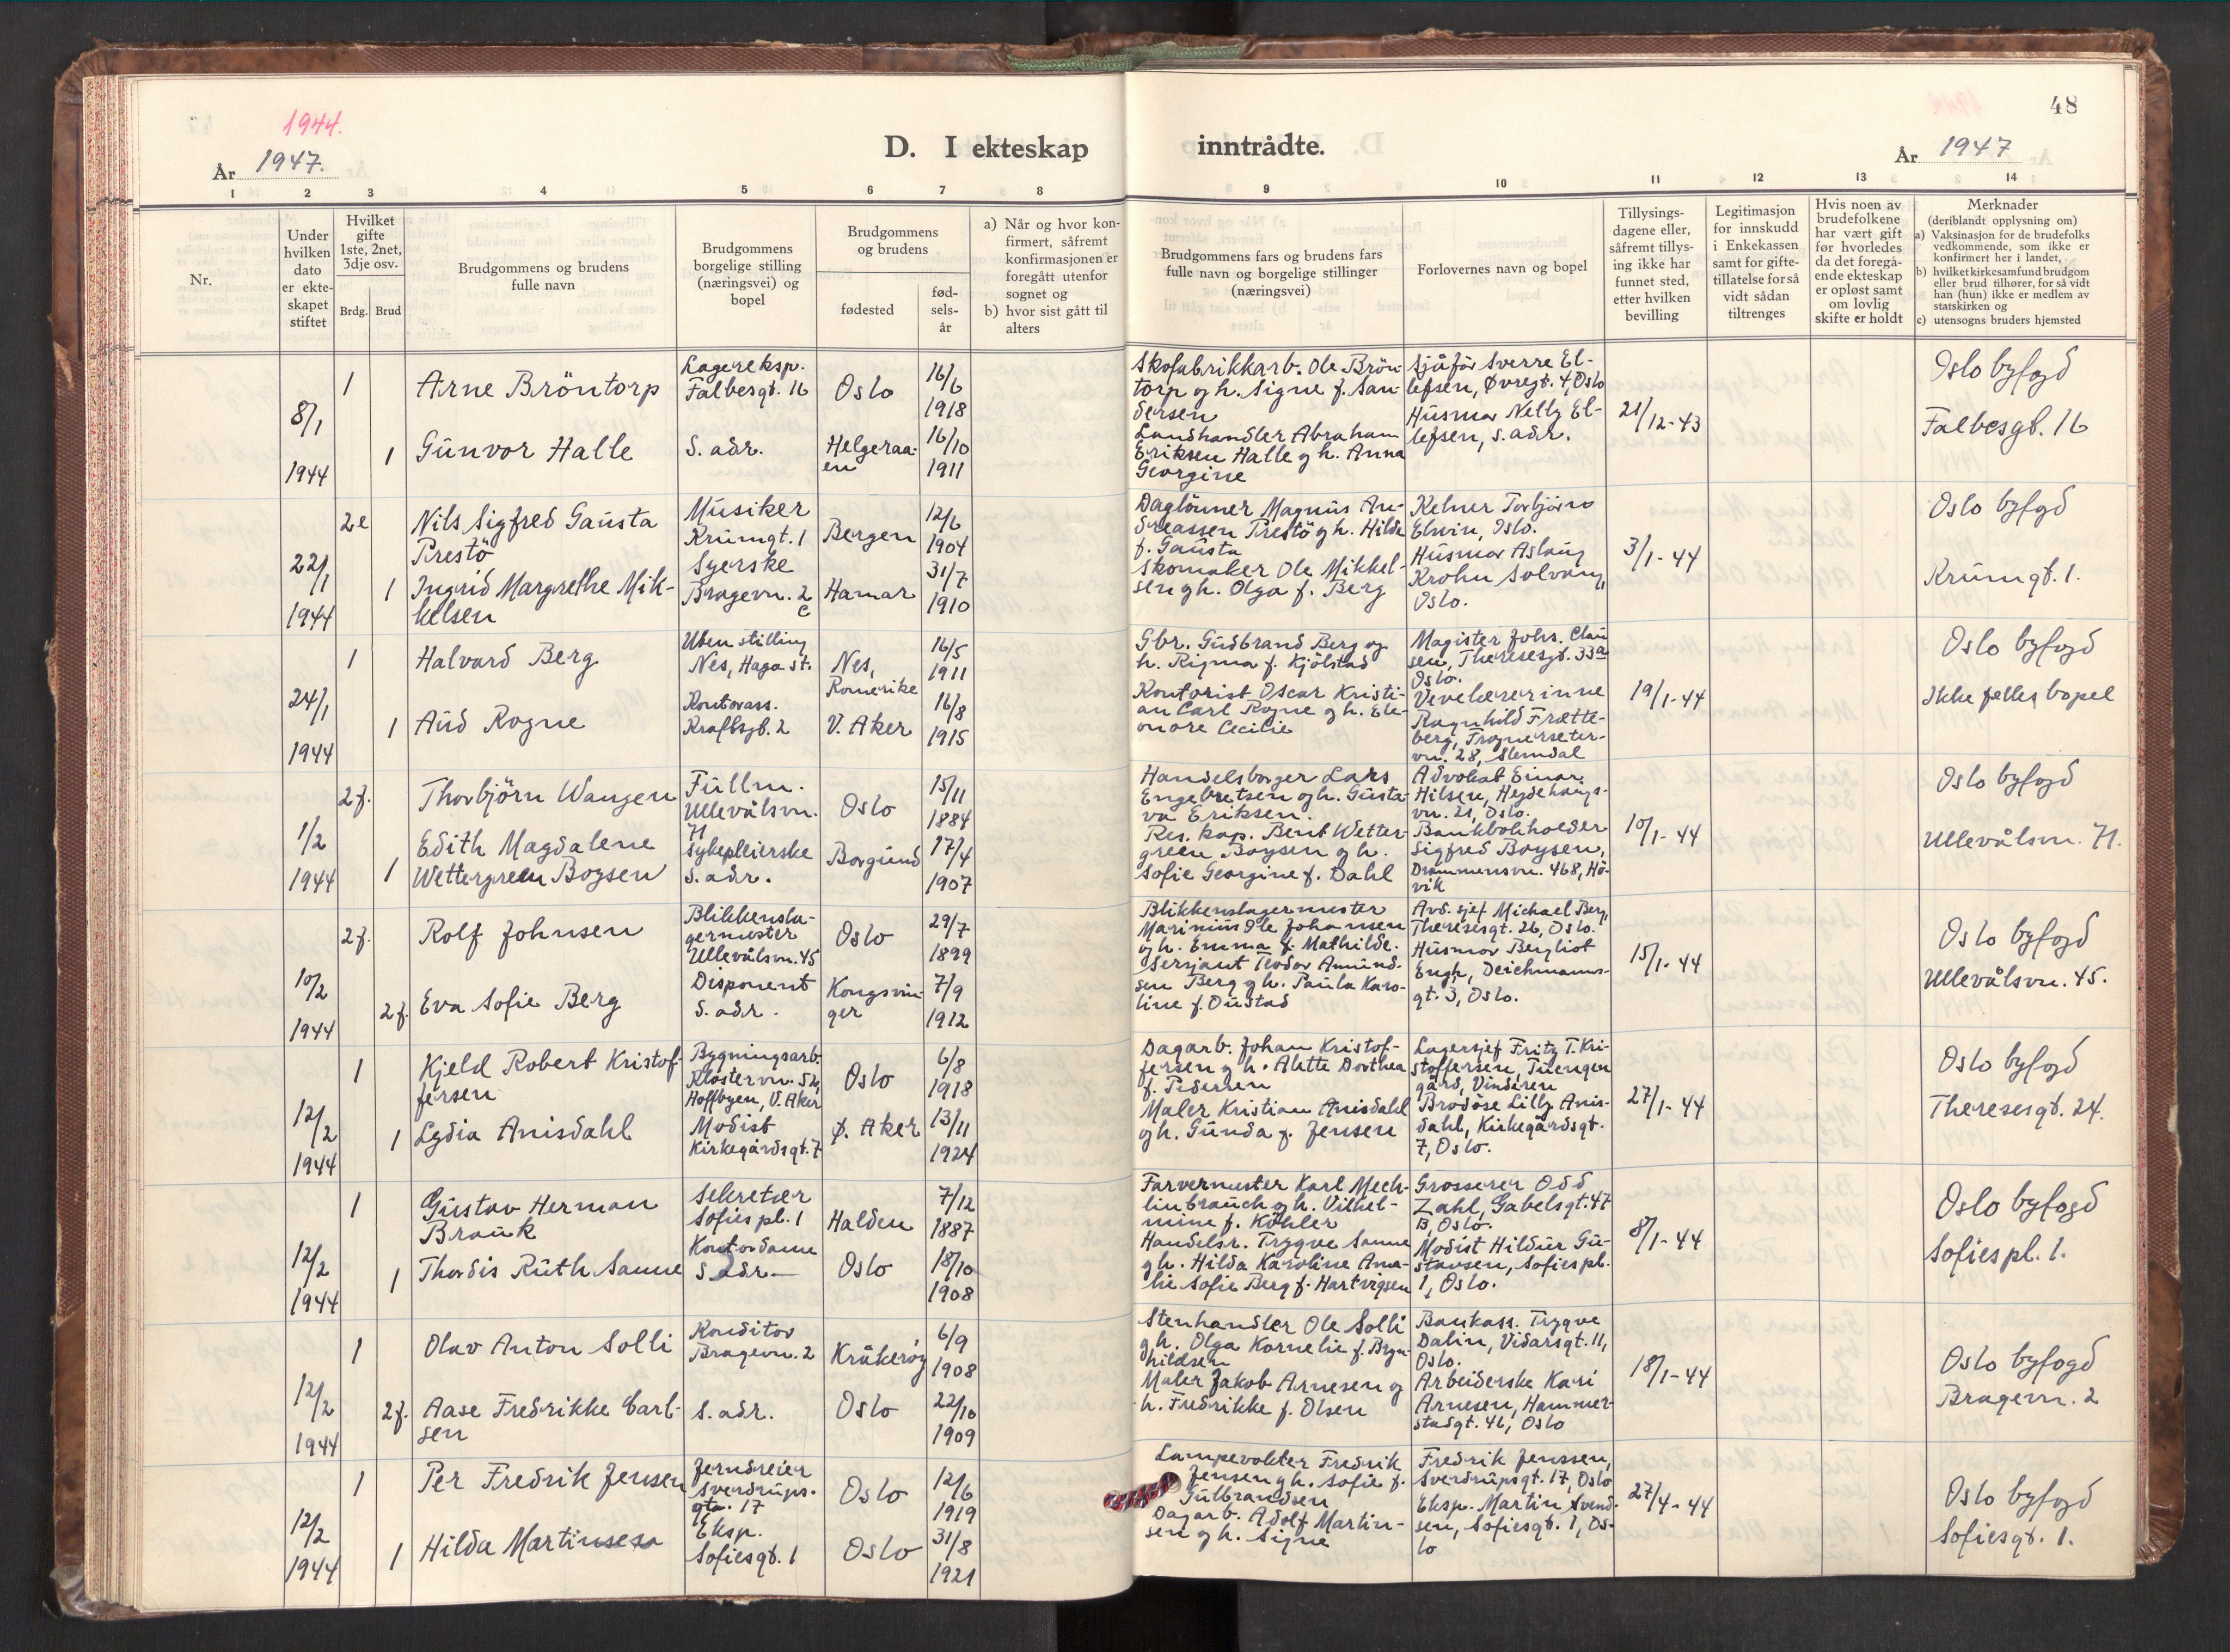 48
1944.
År 1947.
D. I ekteskap inntrådte.
År 1947
1 2 3 4 5 6 7 8 9 10 11 12 13 14
Nr.
Under
hvilken
dato
er ekte-
skapet
stiftet
Hvilket
gifte
1ste, 2net,
3dje osv.
Brdg. Brud
Brudgommens og brudens
fulle navn
Brudgommens
borgelige stilling
(næringsvei) og
bopel
Brudgommens
og brudens
fødested
fød-
sels-
år
a) Når og hvor kon-
firmert, såfremt
konfirmasjonen er
foregått utenfor
sognet og
b) hvor sist gått til
alters
Brudgommens fars og brudens fars
fulle navn og borgelige stillinger
(næringsvei)
Forlovernes navn og bopel
Tillysings-
dagene eller,
såfremt tillys-
ing ikke har
funnet sted,
etter hvilken
bevilling
Legitimasjon
for innskudd
i Enkekassen
samt for gifte-
tillatelse for så
vidt sådan
tiltrenges
Hvis noen av
brudefolkene
har vært gift
før hvorledes
da det foregå-
ende ekteskap
er opløst samt
om lovlig
skifte er holdt
Merknader
(deriblandt opplysning om)
a) Vaksinasjon for de brudefolks
vedkommende, som ikke er
konfirmert her i landet,
b) hvilket kirkesamfund brudgom
eller brud tilhører, for så vidt
han (hun) ikke er medlem av
statskirken og
c) utensogns bruders hjemsted
8/1
1944
1
Arne Bröntorp
Lagereksp.
Falbesgt. 16
Oslo
16/6
1918
1
Gunvor Halle
S. adr.
Helgeraa-
en
16/10
1911
Skofabrikkarb. Ole Brön-
torp og h. Signe f. San-
dersen
Landhandler Abraham
Eriksen Halle og h. Anna
Georgine
Sjåfør Sverre El-
lefsen, Øvregt. 4, Oslo
Husmor Nelly El-
lefsen, s. adr.
21/12-43
Oslo byfogd
Falbesgt. 16
22/1
1944
2e
Nils Sigfred Gausta
Prestö
Musiker
Krumgt. 1
Bergen
12/6
1904
1
Ingrid Margrethe Mik-
kelsen
Syerske
Bragevn. 2
c
Hamar
31/7
1910
Daglönner Magnus An-
dreassen Prestö og h. Hilda
f. Gausta
Skomaker Ole Mikkel-
sen og h. Olga f. Berg
Kelner Torbjörn
Elvin, Oslo.
Husmor Aslaug
Krohn Solvang,
Oslo.
3/1-44
Oslo byfgd
Krumgt. 1.
24/1
1944
1
Halvard Berg
Uten stilling
Nes, Haga st.
Nes,
Romerike
16/5
1911
1
Aud Rogne
Kontorass.
Kraftsgt. 2
V. Aker
16/8
1915
Gbr. Gudbrand Berg og
h. Rigma f. Kjölstad
Kontorist Oscar Kristi-
an Carl Rogne og h. Ele-
onore Cecilie
Magister Johs. Clau
sen, Theresesgt. 33a
Oslo.
Vevelærerinne
Ragnhild Frætte-
berg, Frognerseter-
vn. 28, Slemdal
19/1-44
Oslo byfogd
Ikke felles bopel
1/2
1944
2f.
Thorbjörn Wangen
Fullm.
Ullevålsvn.
71
Oslo
15/11
1884
1
Edith Magdalene
Wettergreen Boysen
Sykepleierske
S. adr.
Borgund
17/4
1907
Handelsborger Lars
Engebretsen og h. Gusta-
va Eriksen.
Res. kap. Bent Wetter-
green Boysen og h.
Sofie Georgine f. Dahl
Advokat Einar
Hilsen, Heydehaugs-
vn. 21, Oslo.
Bankbokholder
Sigfred Boysen,
Drammensvn. 468, Hö-
vik
10/1-44
Oslo byfogd
Ullevålsvn. 71.
10/2
1944
2f.
Rolf Johnsen
Blikkensla-
germester
Ullevålsvn. 45
Oslo
29/7
1899
2f.
Eva Sofie Berg
Disponent
S. adr.
Kongsvin-
ger
7/9
1912
Blikkenslagermester
Marinius Ole Johansen
og h. Emma f. Mathilde.
Sersjant Teodor Amund-
sen Berg og h. Paula Karo-
line f. Oustad
Avd. sjef Michael Berg,
Theresesgt. 26, Oslo.
Husmor Bergliot
Engh, Deichmanns-
gt. 3, Oslo.
15/1-44
Oslo byfogd
Ullevålsvn. 45.
12/2
1944
1
Kjeld Robert Kristof-
fersen
Bygningsarb.
Klostervn. 52,
Hoffbyen, V. Aker
Oslo
6/8
1918
1
Lydia Anisdahl
Modist
Kirkegårdsgt. 7
Ø. Aker
13/11
1924
Dagarb. Johan Kristof-
fersen og h. Alette Dorthea
f. Pedersen
Maler Kristian Anisdahl
og h. Gunda f. Jensen
Lagersjef Fritz T. Kri-
stoffersen, Tuengen
gård, Vinderen
Brodöse Lilly Anis-
dahl, Kirkegårdsgt.
7, Oslo.
27/1-44
Oslo byfogd
Theresesgt. 24.
12/2
1944
1
Gustav Herman
Brauk
Sekretær
Sofies pl. 1
Halden
7/12
1887
1
Thordis Ruth Sanne
Kontordame
S. adr.
Oslo
18/10
1908
Farvermester Karl Mech-
lin brauch og h. Vilhel-
mine f. Köhler
Handelsr. Trygve Sanne
og h. Hilda Karoline Ama-
lie Sofie Berg f. Hartvigsen
Grosserer Odd
Zahl, Gabelsgt. 47
B, Oslo.
Modist Hildur Gu-
stavsen, Sofies pl.
1, Oslo.
8/1-44
Oslo byfogd
Sofies pl. 1.
12/2
1944
1
Olav Anton Solli
Konditor
Bragevn. 2
Kråkeröy
6/9
1908
2f.
Aase Fredrikke Carl-
sen
S. adr.
Oslo
22/10
1909
Stenhandler Ole Solli
og h. Olga Kornelie f. Bryn-
hildsen
Maler Jakob Arnesen og
h. Fredrikke f. Olsen
Bankass. Trygve
Dalin, Vidarsgt. 11,
Oslo.
Arbeiderske Kari
Arnesen, Hammer-
stadgt. 46, Oslo
18/1-44
Oslo byfogd
Bragevn. 2
12/2
1944
1
Per Fredrik Jensen
Jerndreier
Sverdrups-
gt. 17
Oslo
12/6
1919
1
Hilda Martinsen
Eksp.
Sofiesgt. 1
Oslo
31/8
1921
Lampevokter Fredrik
Jensen og h. Sofie f.
Gulbrandsen
Dagarb. Adolf Martin-
sen og h. Signe
Fredrik Jenssen,
Sverdrupsgt. 17, Oslo
Eksp. Martin Svend-
sen, Sofiesgt. 1, Os-
lo
27/4-44
Oslo byfogd
Sofiesgt. 1.